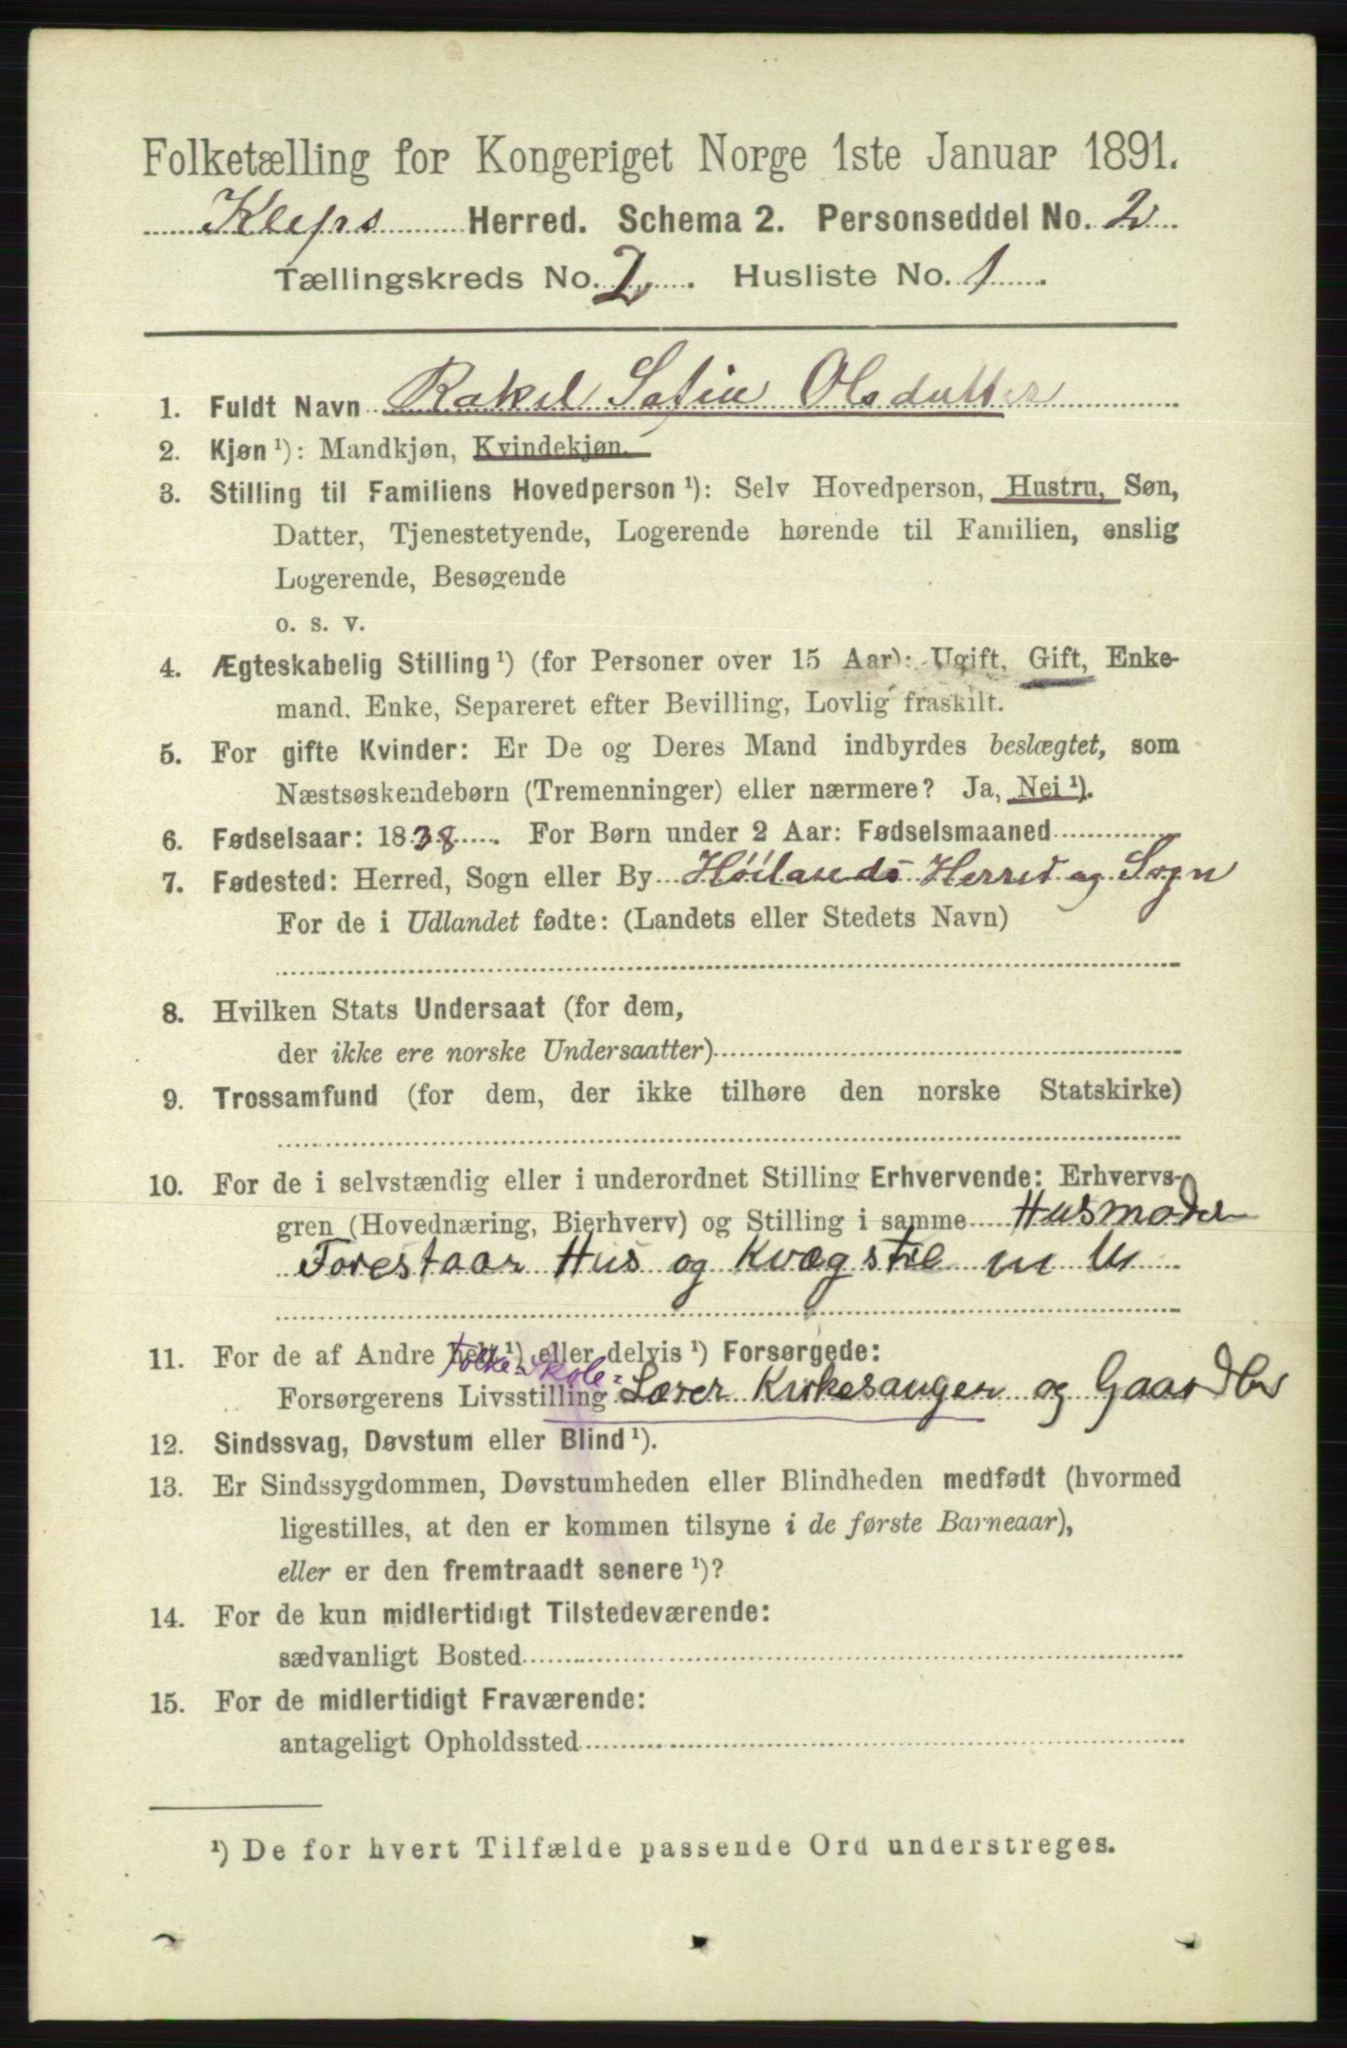 Folketælling for Kongeriget Norge 1ste Januar 1891.
Kleps Herred. Schema 2. Personseddel No. 2
Tællingskreds No. 2. Husliste No. 1.
1. Fuldt Navn Rakel Sofin Olsdutter
2. Kjøn ¹): Mandkjøn, Kvindekjøn.
3. Stilling til Familiens Hovedperson ¹): Selv Hovedperson, Hustru, Søn,
Datter, Tjenestetyende, Logerende hørende til Familien, enslig
Logerende, Besøgende
o. s. v.
4. Ægteskabelig Stilling ¹) (for Personer over 15 Aar): Ugift, Gift, Enke-
mand, Enke, Separeret efter Bevilling, Lovlig fraskilt.
5. For gifte Kvinder: Er De og Deres Mand indbyrdes beslægtet, som
Næstsøskendebørn (Tremenninger) eller nærmere? Ja, Nei ¹).
6. Fødselsaar: 1838. For Børn under 2 Aar: Fødselsmaaned
7. Fødested: Herred, Sogn eller By Höilands Herred og Sogn
For de i Udlandet fødte: (Landets eller Stedets Navn)
8. Hvilken Stats Undersaat (for dem,
der ikke ere norske Undersaatter)
9. Trossamfund (for dem, der ikke tilhøre den norske Statskirke)
10. For de i selvstændig eller i underordnet Stilling Erhvervende: Erhvervs-
gren (Hovednæring, Bierhverv) og Stilling i samme Husmoder
Forestaar Hus og Kvægstel m M
11. For de af Andre helt ¹) eller delvis ¹) Forsørgede:
Folkeskole-
Forsørgerens Livsstilling Lærer Kirkesanger og Gaardbr
12. Sindssvag, Døvstum eller Blind ¹).
13. Er Sindssygdommen, Døvstumheden eller Blindheden medfødt (hvormed
ligestilles, at den er kommen tilsyne i de første Barneaar),
eller er den fremtraadt senere ¹)?
14. For de kun midlertidigt Tilstedeværende:
sædvanligt Bosted
15. For de midlertidigt Fraværende:
antageligt Opholdssted
¹) De for hvert Tilfælde passende Ord understreges.